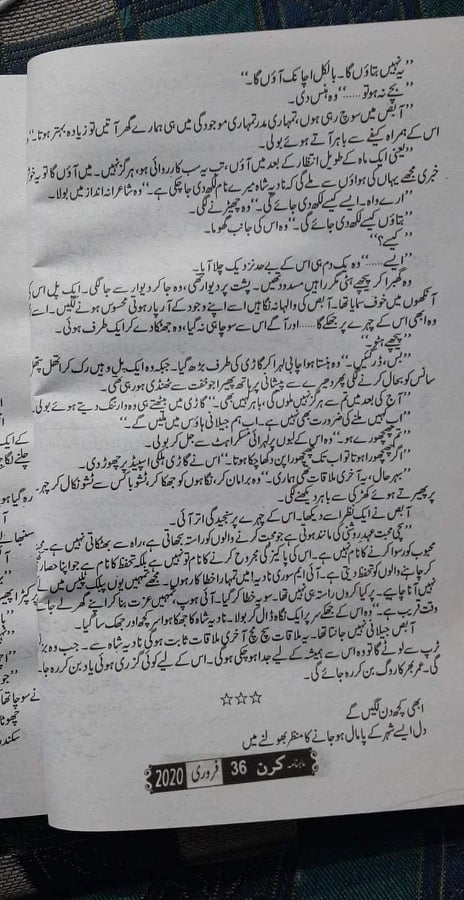 ”یہ نہیں بتاؤں گا۔ بالکل اچانک آؤں گا۔“
”بچے نہ ہو تو......“ وہ ہنس دی۔
”آبص میں سوچ رہی ہوں، تمہاری مدر تمہاری موجودگی میں ہی ہمارے گھر آتیں تو زیادہ بہتر ہوتا۔“
اس کے ہمراہ کیفے سے باہر آتے ہوئے بولی۔
”یعنی ایک ماہ کے طویل انتظار کے بعد میں آؤں، تب یہ سب کارروائی ہو، ہرگز نہیں۔ میں آؤں گا تو یہ
خبری مجھے یہاں کی ہواؤں سے ملے گی کہ نادیہ شاہ میرے نام لکھ دی جا چکی ہے۔“ وہ شاعرانہ انداز میں بولا۔
”ارے واہ۔ ایسے کیسے لکھ دی جائے گی۔“ وہ چھیڑنے لگی۔
”بتاؤں کیسے لکھ دی جائے گی۔“ وہ اس کی جانب گھوما۔
”کیسے؟“
”ایسے......“ وہ یک دم ہی اس کے بے حد نزدیک چلا آیا۔
وہ گھبرا کر پیچھے ہٹی مگر راہیں مسدود تھیں۔ پشت پر دیوار تھی، وہ جا کر دیوار سے جا لگی۔ ایک پل اس کی
آنکھوں میں خوف سمایا تھا۔ آبص کی والہانہ نگاہیں اسے اپنے وجود کے آر پار ہوتی محسوس ہونے لگیں۔
وہ ابھی اس کے چہرے پر جھکے گا......اور آگے اس سے سوچا ہی نہ گیا، وہ جھٹکا دے کر ایک طرف ہوئی۔
”پیچھے ہٹو۔“
”بس، ڈر گئیں۔“ وہ ہنستا ہوا چابی لہرا کر گاڑی کی طرف بڑھ گیا۔ جبکہ وہ ایک پل وہیں رک کر اتھل پتھل
سانس کو بحال کرنے لگی پھر دھیرے سے پیشانی پر ہاتھ پھیرا جو خفت سے ٹھنڈی ہو رہی تھی۔
”آج کی بعد میں تم سے ہرگز نہیں ملوں گی، باہر نہیں بھی۔“ گاڑی میں بیٹھتے ہی وہ وارننگ دیتے ہوئے بولی۔
”اب کہیں ملنے کی ضرورت بھی نہیں ہے۔ اب ہم جیلانی ہاؤس میں ملیں گے۔“
”تم چھچھورے ہو۔“ وہ اس کے لبوں پر لہرائی مسکراہٹ سے جل کر بولی۔
”اگر چھچھورا ہوتا تو اب تک چھچھورا پن دکھا چکا ہوتا۔“ اس نے گاڑی ہلکی اسپیڈ پر چھوڑ دی۔
”بہرحال، یہ آخری ملاقات تھی ہماری۔“ وہ برا مان کر، نگاہوں کو جھکا کر ٹشو باکس سے ٹشو نکال کر
پر پھیرتے ہوئے کھڑکی سے باہر دیکھنے لگی۔
آبص نے ایک نظر اسے دیکھا۔ اس کے چہرے پر سنجیدگی اتر آئی۔
”سچی محبت عہد روشنی کی مانند ہوتی ہے جو محبت کرنے والوں کو راستہ دکھاتی ہے، راہ سے بھٹکاتی نہیں ہے۔
محبوب کو رسوا کرنے کا نام نہیں ہے۔ اس کی پاکیزگی مجروح کرنے کا نام تو نہیں ہے بلکہ تحفظ کا نام ہے جو اپنا حصار
کر چاہنے والوں کو تحفظ دیتی ہے۔ آئی ایم سوری نادیہ! میں تمہارا خطا کار ہوں۔ مجھے تمہیں یوں پبلک پلیس میں
نہیں آنا چاہیے۔ پر کیا کروں راستہ ہی نہیں تھا۔ سو یہ خطا کر گیا۔ آئی ہوپ، تمہیں عزت بنا کر اپنے گھر لے جانے
وقت قریب ہے۔“ وہ اس کے جھکے سر پر ایک نگاہ ڈال کر بولا۔ نادیہ شاہ کا جھکا ہوا سر کچھ اور جھک سا گیا۔
آبص جیلانی نہیں جانتا تھا۔ یہ ملاقات سچ مچ آخری ملاقات ثابت ہو گی نادیہ شاہ سے۔ جب وہ
ٹرپ سے لوٹے گا تو وہ اس سے ہمیشہ کے لیے جدا ہو چکی ہو گی۔ اس کے لیے کوئی گزری ہوئی یاد بن کر رہ جائے
گی۔ عمر بھر کا روگ بن کر رہ جائے گی۔
☆☆☆
ابھی کچھ دن لگیں گے
دل ایسے شہر کے پامال ہو جانے کا منظر بھولنے میں
ماہنامہ کرن 36 فروری 2020